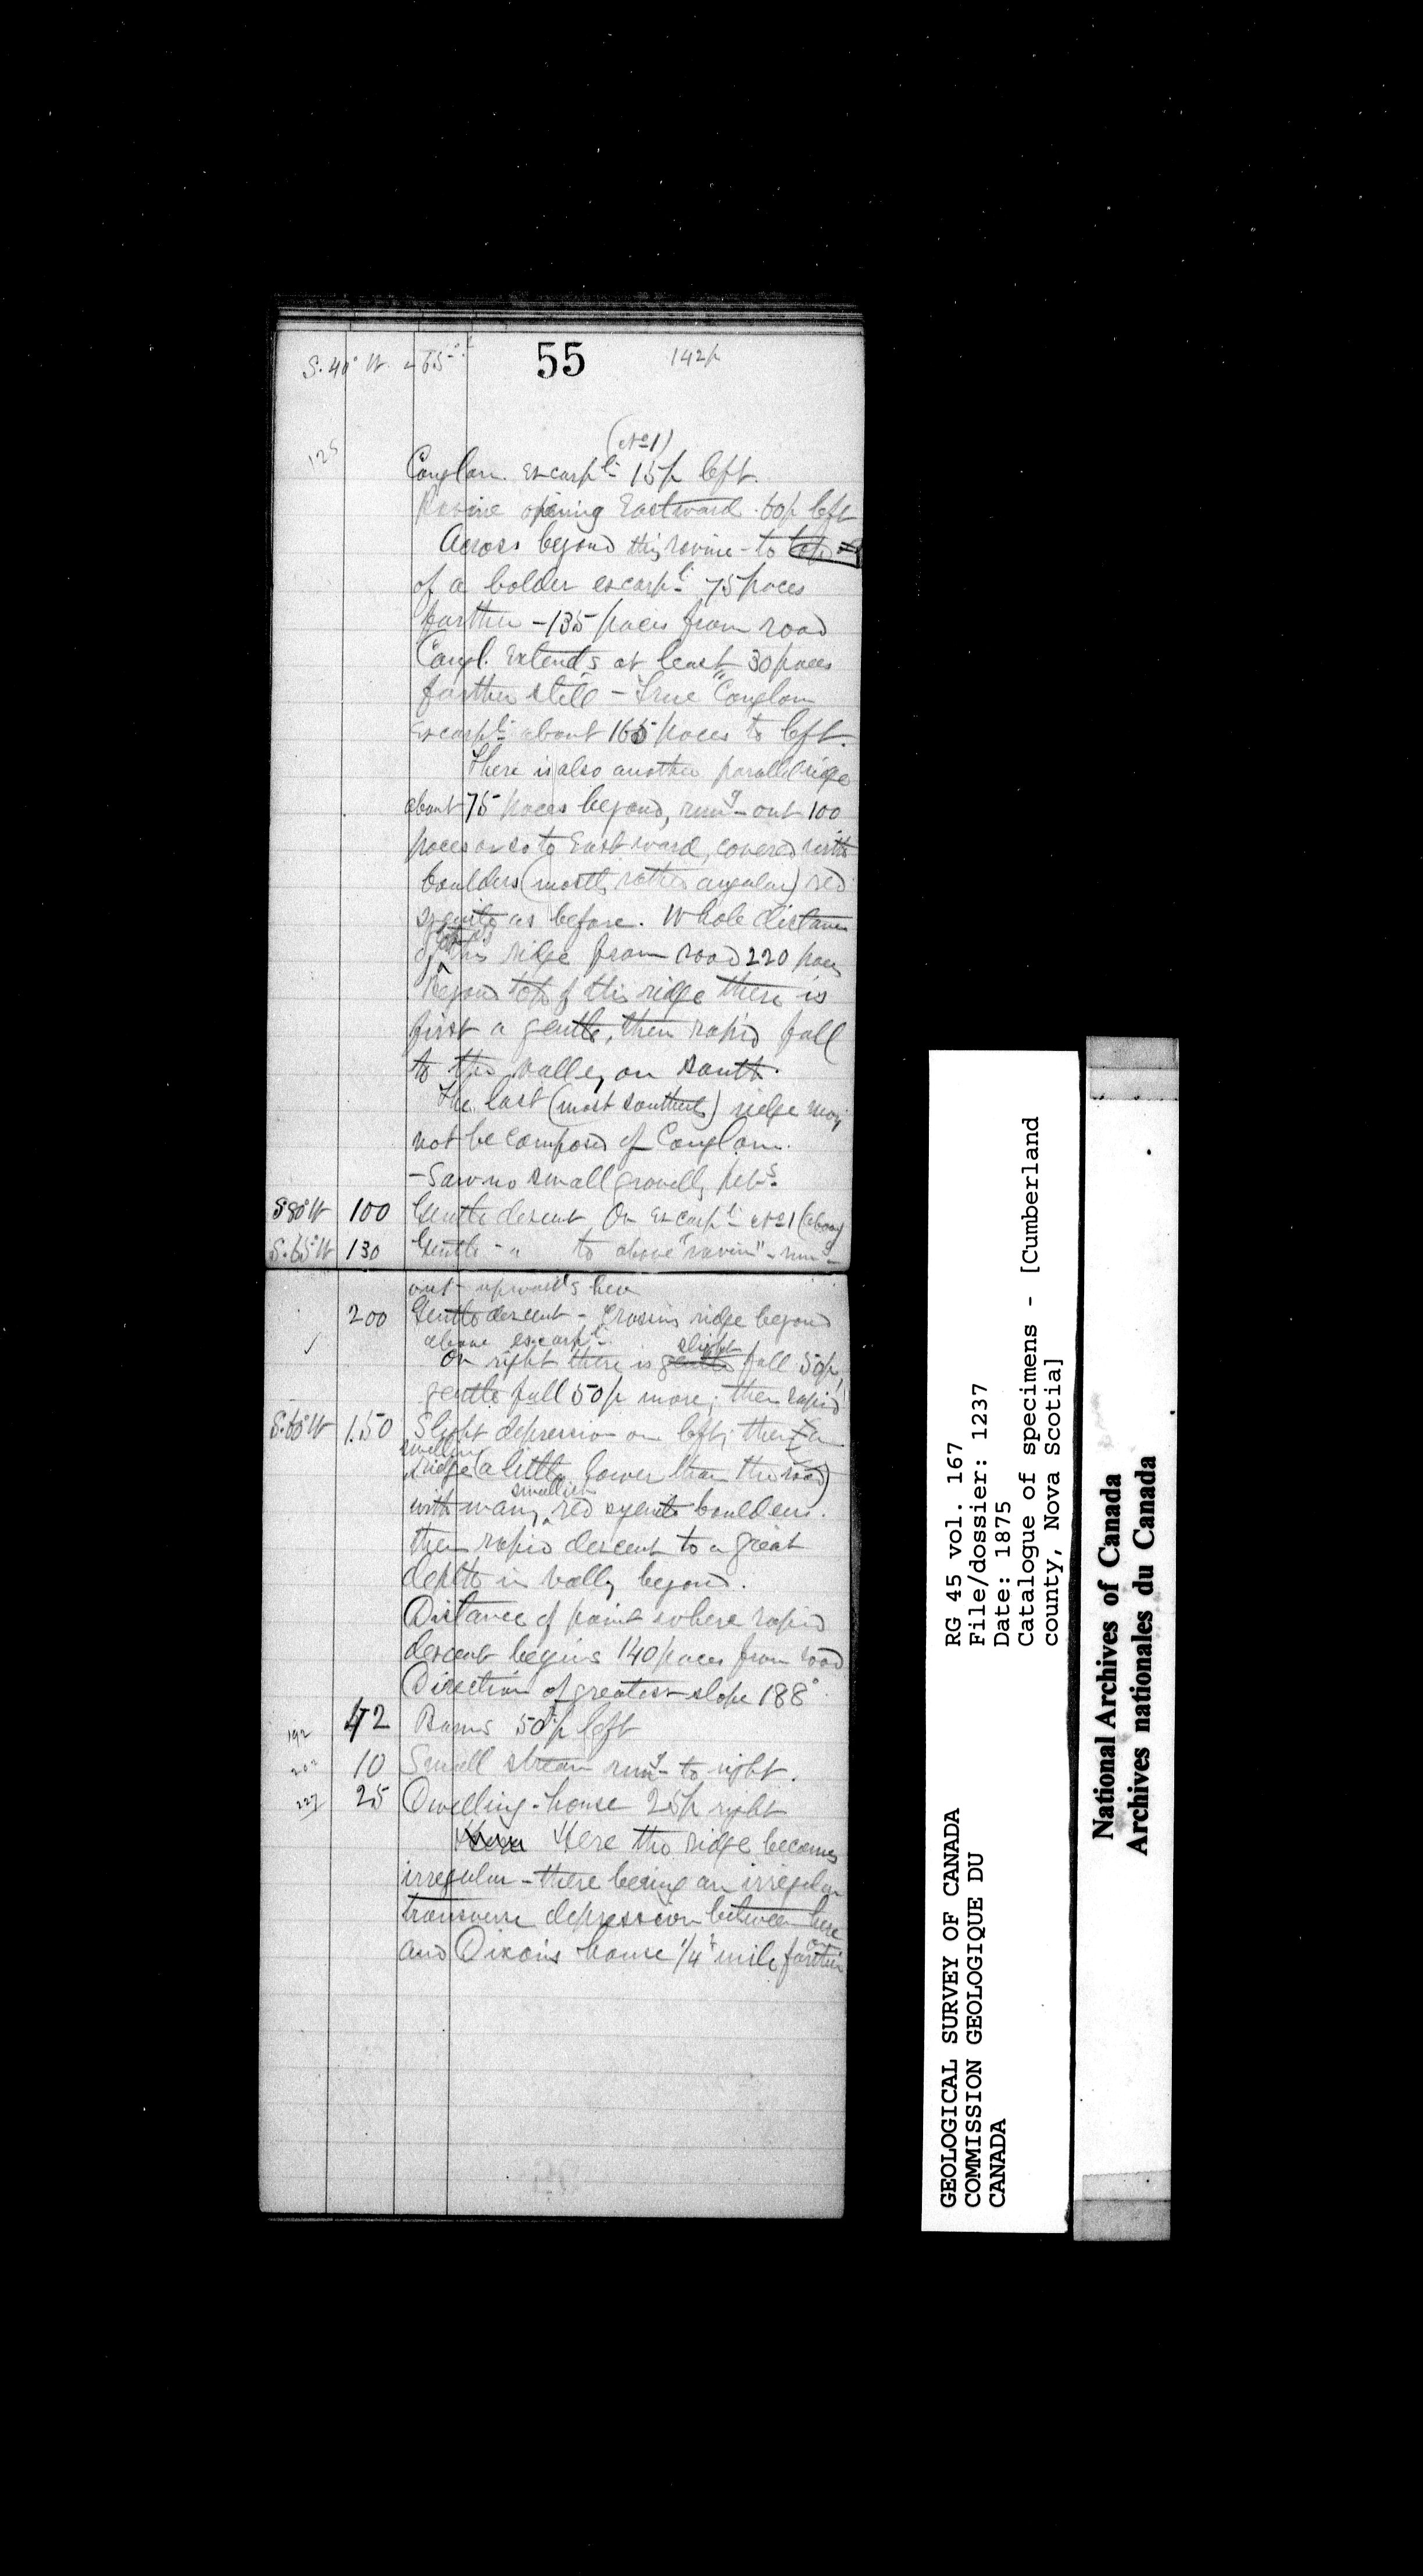 S. 40° W. 65 55 142p
125
(No 1)
Conglom. escarpt 15p left.
Ravine opening Eastward 60p left
Across beyond this ravine - to top
of a bolder escarpt 75 paces
farther - 135 paces from road
Congl. Extends at least 30 paces
farther still - True "Conglom
escarpt about 165 paces to left.
There is also another parallel ridge
about 75 paces beyond, rung out 100
paces or so to Eastward, covered with
boulders (mostly rather angular) red
syenite as before. Whole distance
of this ridge from road 220 paces
Beyond top of this ridge there is
first a gentle, then rapid fall
to the valley on south.
The last (most southerly) ridge may
not be composed of Conglom.
- Saw no small gravelly pebs.
S 80° W 100 Gentle descent On Escarpt No 1 (above)
S. 65° W 130 Gentle - " to above "ravine" - rung
out - upwards here
200 Gentle descent - Crossing ridge beyond
above escarpt
On right there is gentle slight fall 50p,
gentle fall 50p more; then rapid!
S. 60° W 150 Slight depression on left; then a
swelling
ridge (a little lower than the road)
smallish
with many red syenite boulders.
then rapid descent to a great
depth in valley beyond.
Distance of point where rapid
descent begins 140 paces from road
Direction of greatest slope 188°
192 42 Barns 50p left
202 10 Small stream rung to right.
227 25 Dwelling-house 25p right
Here the ridge becomes
irregular - there being an irregular
transverse depression between here
and Dixon's house 1/4 mile farther
on
GEOLOGICAL SURVEY OF CANADA
COMMISSION GEOLOGIQUE DU
CANADA
RG 45 vol. 167
File/dossier: 1237
Date: 1875
Catalogue of specimens - [Cumberland
county, Nova Scotia]
National Archives of Canada
Archives nationales du Canada